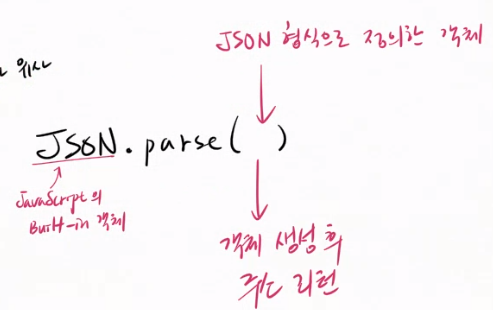 JSON 형식으로 정의한 객체
유사
JSON.parse( )
JavaScript의
Built-in 객체
객체 생성 후
주소 리턴